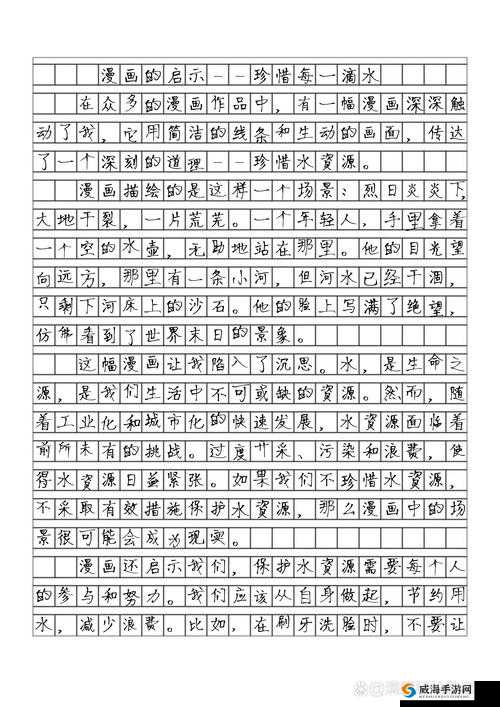 漫画的启示--珍惜每一滴水
在众多的漫画作品中，有一幅漫画深深触
动了我，它用简洁的线条和生动的画面，传达
了一个深刻的道理--珍惜水資源。
漫画描绘的是这样一个场景：烈日炎炎下，
大地干裂，一片荒芜。一个年轻人，手里拿着
一个空的水壶，无助地站在那里。他的目光望
向远方，那里有一条小河，但河水已经干涸，
只剩下河床上的沙石。他的脸上写满了绝望，
仿佛看到了世界末日的景象。
这幅漫画让我陷入了沉思。水，是生命之
源，是我们生活中不可或缺的资源。然而，随
着工业化和城市化的快速发展，水资源面临着
前所未有的挑战。过度开采、污染和浪费，使
得水資源日益紧张。如果我们不珍惜水資源，
不采取有效措施保护水資源，那么漫画中的场
景很可能会成为现实。
漫画还启示我们，保护水資源需要每个人
的参与和努力。我们应该从自身做起，节约用
水，减少浪费。比如，在刷牙洗脸时，不要让
威海手游网